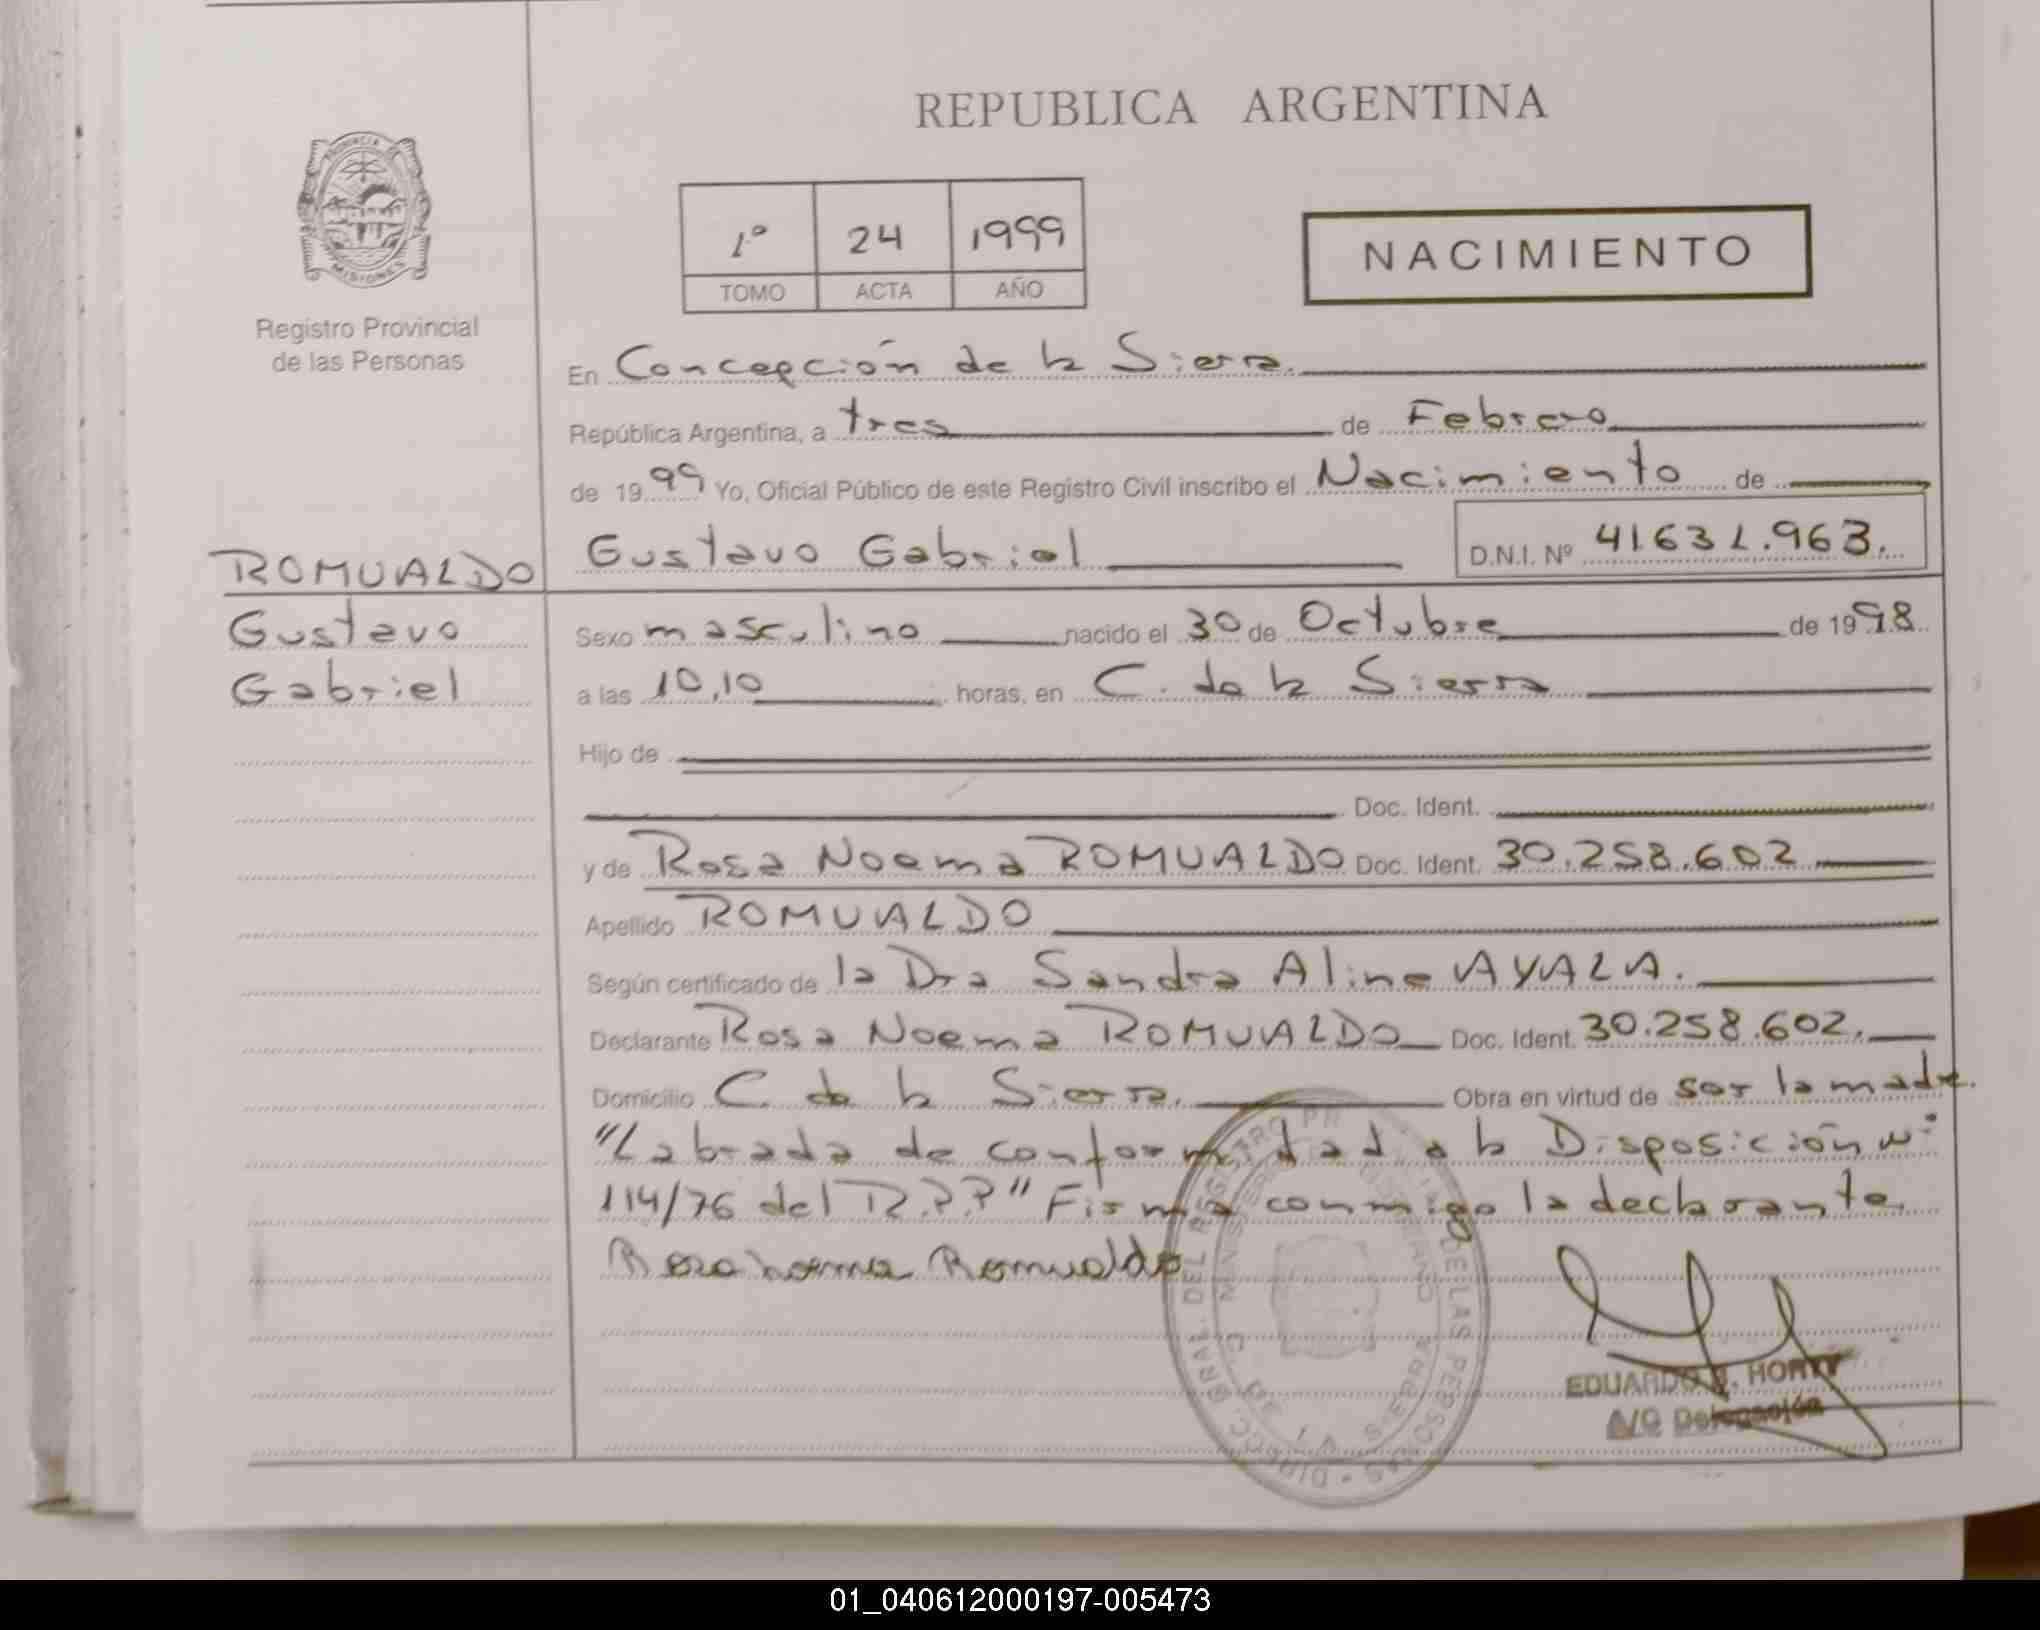 REPUBLICA ARGENTINA
PROVINCIA DE MISIONES
Registro Provincial
de las Personas
1º 24 1999
TOMO ACTA AÑO
NACIMIENTO
En Concepción de la Sierra.
República Argentina, a tres de Febrero
de 1999 Yo, Oficial Público de este Registro Civil inscribo el Nacimiento de
Gustavo Gabriel D.N.I. Nº 41.631.963.
ROMUALDO
Gustavo
Gabriel
Sexo masculino nacido el 30 de Octubre de 1998
a las 10,10 horas, en C. de la Sierra
Hijo de
Doc. Ident.
y de Rosa Noema ROMUALDO Doc. Ident. 30.258.602
Apellido ROMUALDO
Según certificado de la Dra Sandra Aline AYALA.
Declarante Rosa Noema ROMUALDO Doc. Ident. 30.258.602.
Domicilio C. de la Sierra. Obra en virtud de ser la madre.
"Labrada de conformidad a la Disposición nº
114/76 del R.P.P" Firma conmigo la declarante
Rosa noema Romualdo
EDUARDO
A/C Delegación
01_040612000197-005473